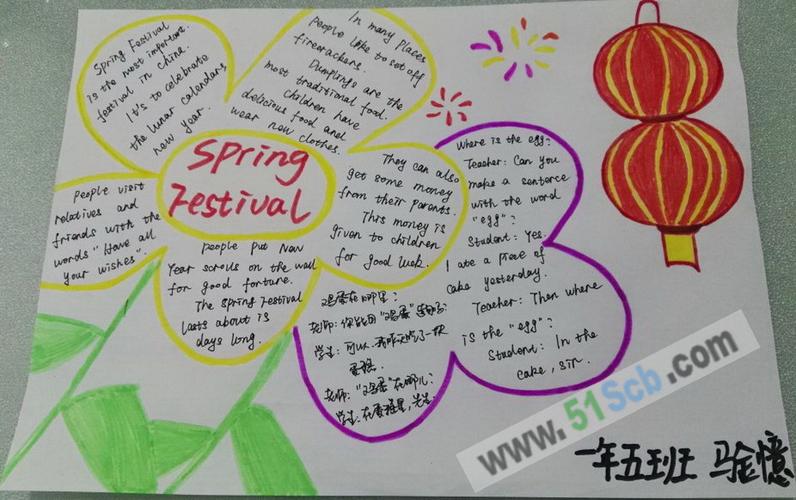 Spring Festival
Spring Festival
is the most important
festival in China.
It's to celebrate
the lunar calendars
new year.
In many places
people like to set off
firecrackers.
Dumplings are the
most traditional food.
Children have
delicious food and
wear new clothes.
They can also
get some money
from their parents.
This money is
given to children
for good luck.
people visit
relatives and
friends with the
words "Have all
your wishes".
people put New
Year scrolls on the wall
for good fortune.
The Spring Festival
lasts about 15
days long.
Where is the egg?
Teacher: Can you
make a sentence
with the word
"egg"?
Student: Yes.
I ate a piece of
cake yesterday.
Teacher: Then where
is the "egg"?
Student: In the
cake, sir.
鸡蛋在哪里?
老师:你能用"鸡蛋"造句吗?
学生:可以.我昨天吃了一块
蛋糕.
老师:"鸡蛋"在哪儿?
学生:在蛋糕里,先生.
一年五班 马金憶
www.51Scb.com